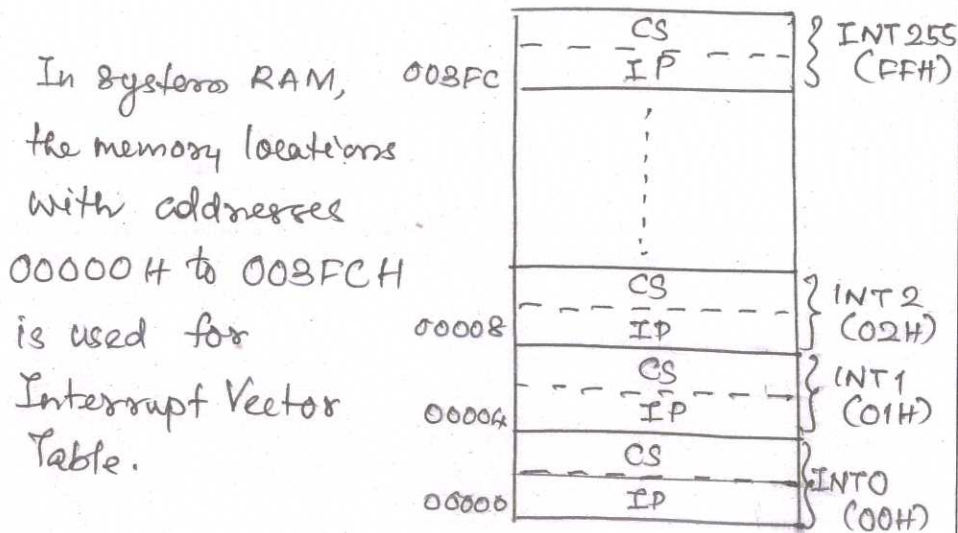 In system RAM,
the memory locations
with addresses
00000H to 003FCH
is used for
Interrupt Vector
Table.
003FC
CS
IP
INT 255
(FFH)
00008
CS
IP
INT 2
(02H)
00004
CS
IP
INT 1
(01H)
00000
CS
IP
INT0
(00H)